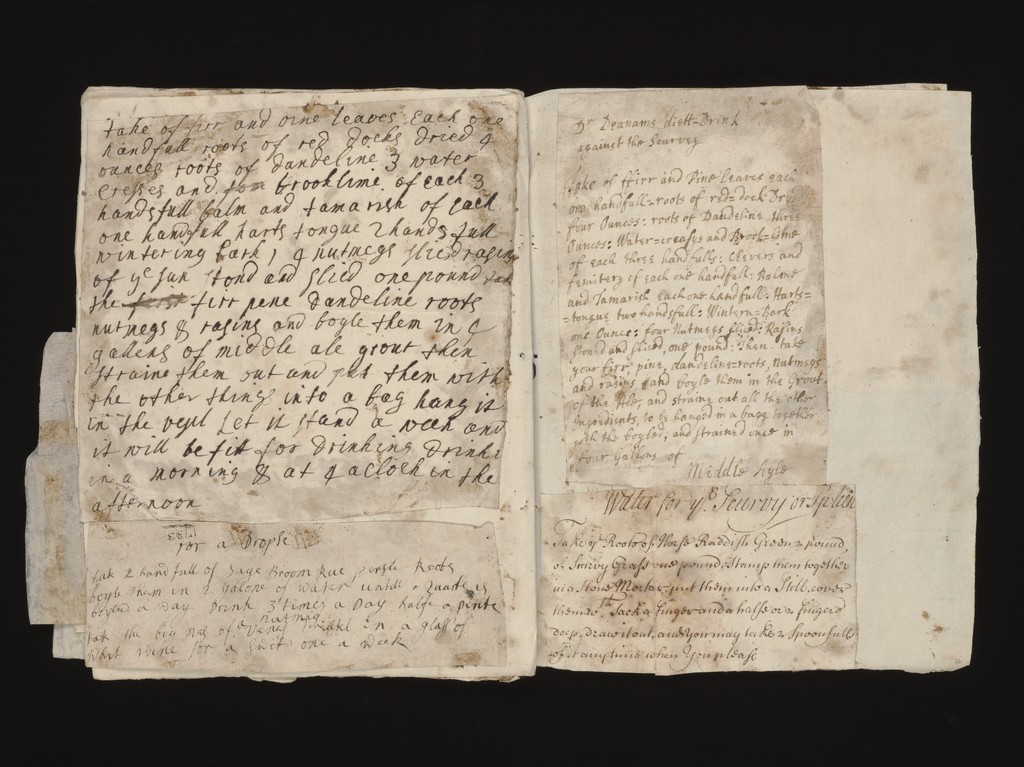 take of firr and pine leaves Each one
handfull roots of red Docks Dried 4
ounces roots of dandeline 3 water
Cresses and brookline of each 3
handsfull balm and tamarish of each
one handfull harts tongue 2 handsfull
wintering bark 1 4 nutmegs slic'd rasins
of ye sun stond and slied one pound
the firr pene Dandeline roots
nutmegs & rasins and boyle them in
gallens of middle ale grout then
straine them out and put them with
the other things into a bag hang it
in the vesil Let it stand a week and
it will be fitt for drinking Drinke
in a morning & at 4 aclock in the
afternoon
for a Dropse
tak 2 handfull of Sage Broom Rue persle Roots
boyle them in 2 galone of water untill a Quarte is
boyled a Day Drink 3 times a Day halfe a pinte
tak the big nes of a nutmeg in a glass of
whit wine for a one a week
Dr Deanams diett=Drink
against the Scurvey
Take of ffirr and Pine leaves each
one handfull=roots of red=dock Dryed
four Ounces: roots of Dandeline three
Ounces: Water=creasys and Brook=lime
of each three handfulls: Clevers and
femitery of each one handfull: Balme
and Tamarish Each one handfull: Harts=
=tongue two handsfull: Wintern=Bark
one Ounce: four Nutmegs sliced: Rasins
stond and sliced, one pound: then take
your firr, pine, dandeline=roots, nutmegs
and rasins and boyle them in the Grout
of the Ale, and straine out all the other
Ingredients, to be hanged in a bagg together
with the boyled, and strained once in
four Gallons of
Middle Ayle
Water for ye Scurvy or Spleen
Take ye Roots of Horse Raddish Green 2 pound,
of Scurvy Grass one pound, Stamp them together
in a Stone Mortar, put them into a Still, cover
them wth Sack a finger and a halfe or 2 fingers
deep, draw it out, and you may take 2 Spoonfulls
of it any time when You please